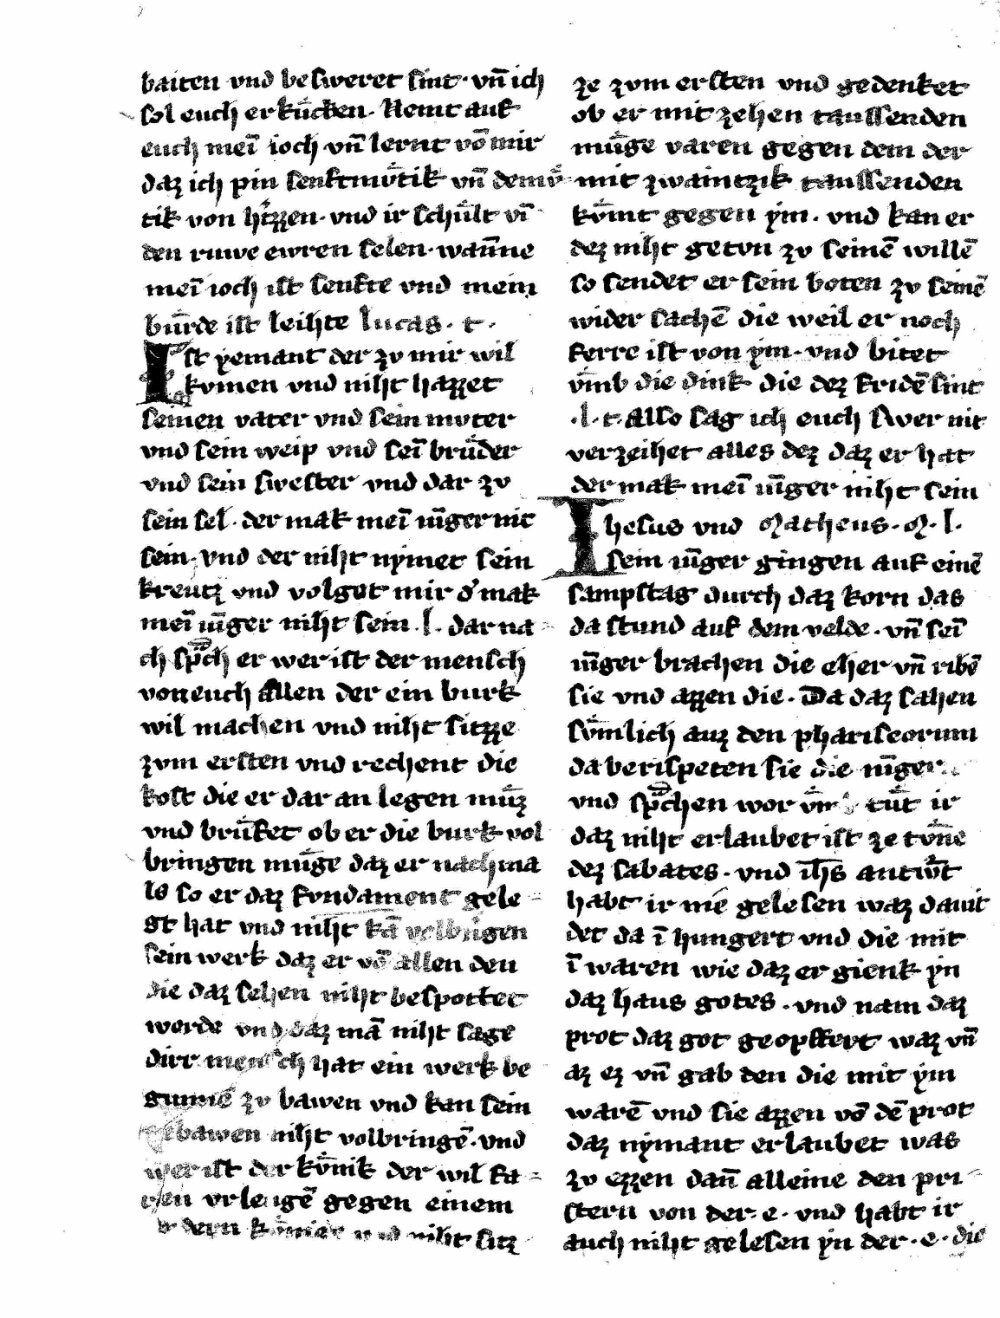 baiten vnd besweret sint · vn̄ ich
sol euch erkuͤcken · Nemt auf
euch mei̅ ioch vn̄ lernt vo̅ mir
daz ich pin senftmuͤtik vn̄ demuͤ
tik von hertzzen · vnd ir schuͤlt vi̅
den ruwe ewren selen · wan̅ne
mei̅ ioch ist senfte vnd mein
buͤrde ist leihte lucas · t ·
Ist yemant der zv mir wil
kvmen vnd niht hazzet
seinen vater vnd sein mvter
vnd sein weip vnd sei̅ bruͤder
vnd sein swester vnd dar zv
sein sel · der mak mei̅ iu̅ger nit
sein · vnd der niht nymet sein
kreutz vnd volget mir d' mak
mei̅ iu̅ger niht sein · l · dar na
ch sp̅ch er wer ist der mensch
von euch allen der ein burk
wil machen vnd niht sitzze
zvm ersten vnd rechent die
kost die er dar an legen muͤz
vnd bruͤfet ob er die burk vol
bringen muͤge daz er nach ma
ls so er daz fvndament gele
gt hat vnd niht ka̅ volbringen
sein werk daz er vo̅ allen den
die daz sehen niht bespottet
werde vnd daz ma̅ niht sage
dirr mensch hat ein werk be
gunne̅ zv bawen vnd kan sein
gebawen niht volbringe̅ · vnd
wer ist der kuͤnik der wil fa
ren vrleuge̅ gegen einem
vnd niht sitz
ze zvm ersten vnd gedenket
ob er mit zehen taussenden
muͤge varen gegen dem der
mit zwaintzik taussenden
kvͤmt gegen ym · vnd kan er
dez niht getvn zv seine̅ wille̅
so sendet er sein boten zv seine̅
wider sache̅ die weil er noch
ferre ist von ym · vnd bitet
vmb die dink die dez fride̅ sint
· l · t · also sag ich euch swer nit
verzeihet alles dez daz er hat
der mak mei̅ iu̅ger niht sein
Ihesus vnd Matheus · M · l ·
sein iu̅ger gingen auf eine̅
sampstag durch daz korn das
da stund auf dem velde · vn̄ sei̅
iu̅ger brachen die eher vn̄ ribe̅
sie vnd azzen die · Da daz sahen
svͤmlich auz den phariseorum
da berispeten sie die iu̅ger
vnd sp̅chen wor vm tuͤt ir
daz niht erlaubet ist ze tvͤne
dez sabates · vnd ih̅s antwͤt
habt ir nie gelesen waz dauit
det da i̅ hungert vnd die mit
i̅ waren wie daz er gienk yn
daz haus gotes · vnd nam daz
prot daz got geopffert waz vn̄
az ez vn̄ gab den die mit ym
ware̅ vnd sie azzen vo̅ de̅ prot
daz nymant erlaubet was
zv ezzen dan̅ alleine den pri
stern von der · e · vnd habt ir
auch niht gelesen yn der · e · die